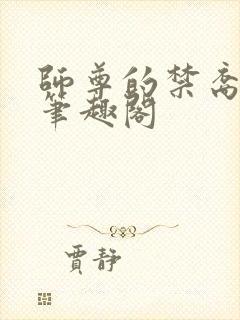 師尊的禁臠
筆趣閣
賈靜